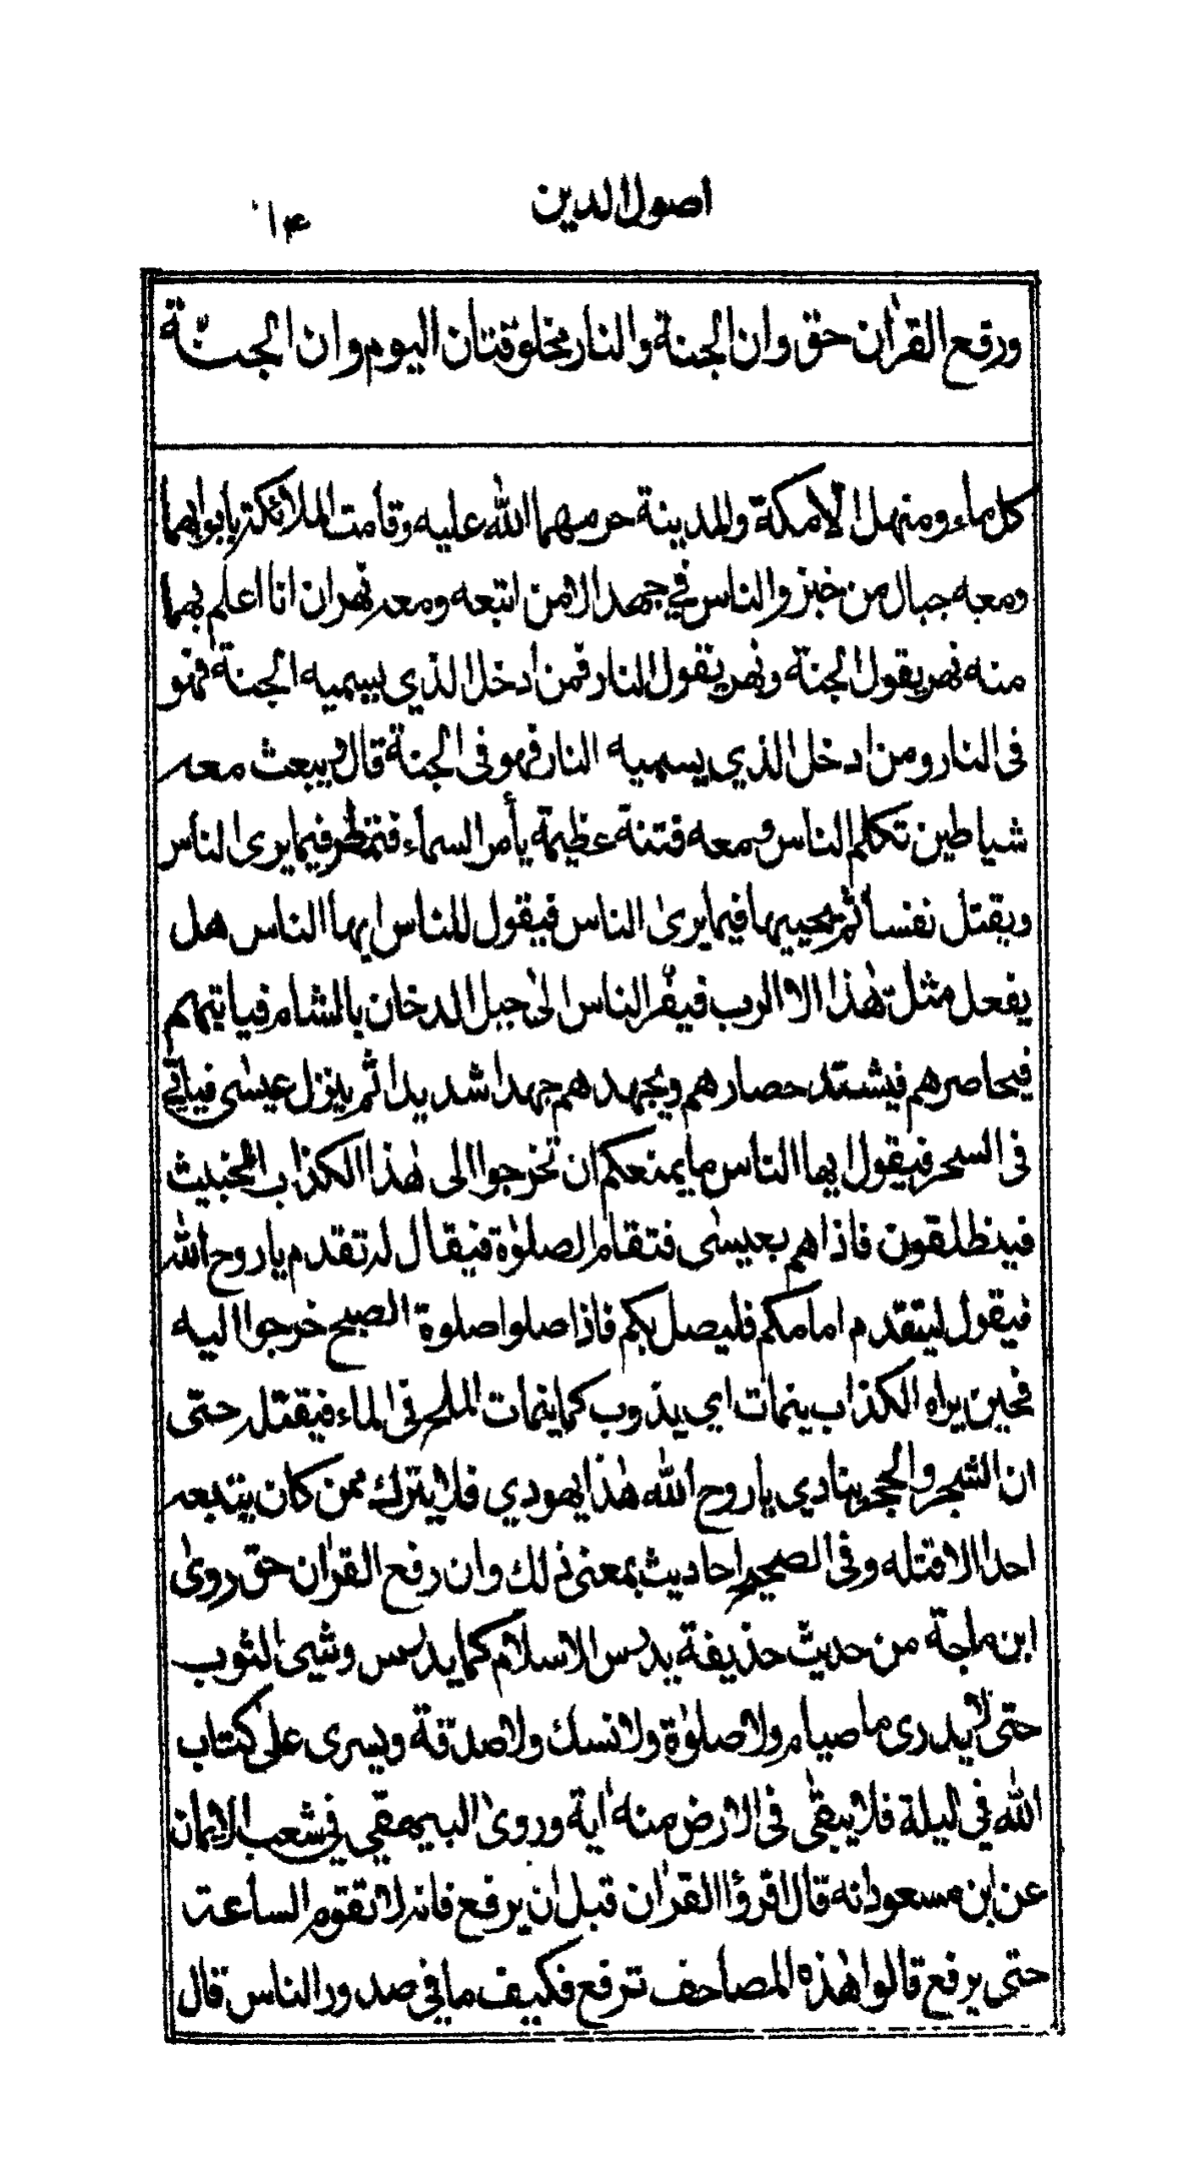 اصول الدين
۱۴
ورفع القرأن حق وان الجنة والنار مخلوقتان اليوم وان الجنّة
كل ماء ومنهل الا مكة والمدينة حرمهما الله عليه وقامت الملائكة بابوابهما
ومعه جبال من خبز والناس في جهد الا من اتبعه ومعه نهران انا اعلم بهما
منه نهر يقول الجنة ونهر يقول النار فمن ادخل الذي يسميه الجنة فهو
فى النار ومن ادخل الذي يسميه النار فهو فى الجنة قال ويبعث معه
شياطين تكلم الناس ومعه فتنة عظيمة يأمر السماء فتمطر فيما يرى الناس
ويقتل نفسا ثم يحييها فيما يرى الناس فيقول للناس ايها الناس هل
يفعل مثل هذا الا الرب فيفر الناس الى جبل الدخان بالشام فياتيهم
فيحاصرهم فيشتد حصارهم ويجهدهم جهدا شديدا ثم ينزل عيسى فياتي
فى السحر فيقول ايها الناس ما يمنعكم ان تخرجوا الى هذا الكذاب الخبيث
فينطلقون فاذاهم بعيسى فتقام الصلوة فيقال له تقدم ياروح الله
فيقول ليتقدم امامكم فليصل بكم فاذا صلوا صلوة الصبح خرجوا اليه
فحين يراه الكذاب ينماث اي يذوب كما ينماث الملح فى الماء فيقتله حتى
ان الشجر والحجر ينادي ياروح الله هذا يهودي فلا يترك ممن كان يتبعه
احدا الا قتله وفى الصحيح احاديث بمعنى ذلك وان رفع القران حق روى
ابن ماجة من حديث حذيفة يدرس الاسلام كما يدرس وشى الثوب
حتى لا يدرى ما صيام ولا صلوة ولا نسك ولا صدقة ويسرى على كتاب
الله في ليلة فلا يبقى فى الارض منه اية وروى البيهقي في شعب الايمان
عن ابن مسعود انه قال اقرؤا القران قبل ان يرفع فانه لا تقوم الساعة
حتى يرفع قالوا هذه المصاحف ترفع فكيف ما في صدور الناس قال